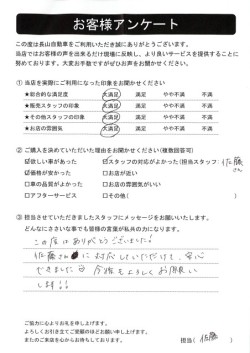 お客様アンケート
この度は長山自動車をご利用いただき誠にありがとうございます。
当店ではお客様の声を出来るだけ現場に反映し、より良いサービスを提供することに
努めております。大変お手数ですがぜひお声をお聞かせください。
① 当店を実際にご利用になった印象をお聞かせください
★総合的な満足度 大満足 満足 やや不満 不満
★販売スタッフの印象 大満足 満足 やや不満 不満
★その他スタッフの印象 大満足 満足 やや不満 不満
★お店の雰囲気 大満足 満足 やや不満 不満
② ご購入を決めていただいた理由をお聞かせください(複数回答可)
☑欲しい車があった ☑スタッフの対応がよかった(担当スタッフ: 佐藤さん
☑価格が安かった □お店が近い
□車の品質がよかった □お店の雰囲気がいい
□アフターサービス □その他(
③ 担当させていただきましたスタッフにメッセージをお願いいたします。
どんなにささいな事でも皆様の言葉が私共の力になります。
この度はありがとうございました!
佐藤さんに対応していただけて、安心
できました 今後もよろしくお願い
します!!
ご協力に心よりお礼を申し上げます。
よろしくお引き立てご愛顧のほどお願い申し上げます。
またのご来店を心からお待ちしております。
担当( 佐藤 )